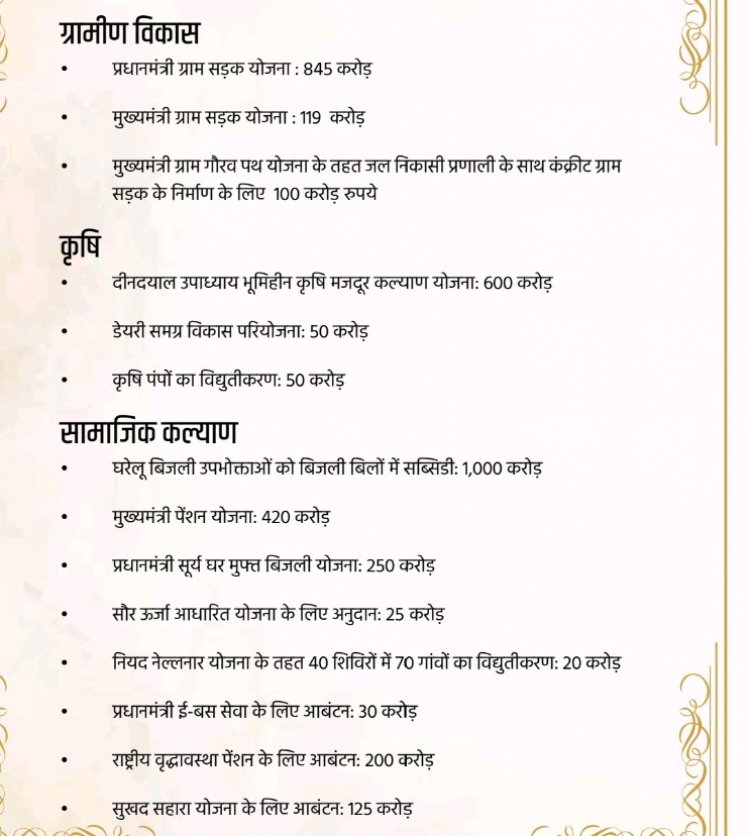 ग्रामीण विकास
• प्रधानमंत्री ग्राम सड़क योजना : 845 करोड़
• मुख्यमंत्री ग्राम सड़क योजना : 119 करोड़
• मुख्यमंत्री ग्राम गौरव पथ योजना के तहत जल निकासी प्रणाली के साथ कंक्रीट ग्राम
सड़क के निर्माण के लिए 100 करोड़ रुपये
कृषि
• दीनदयाल उपाध्याय भूमिहीन कृषि मजदूर कल्याण योजना: 600 करोड़
• डेयरी समग्र विकास परियोजना: 50 करोड़
• कृषि पंपों का विद्युतीकरण: 50 करोड़
सामाजिक कल्याण
• घरेलू बिजली उपभोक्ताओं को बिजली बिलों में सब्सिडी: 1,000 करोड़
• मुख्यमंत्री पेंशन योजना: 420 करोड़
• प्रधानमंत्री सूर्य घर मुफ्त बिजली योजना: 250 करोड़
• सौर ऊर्जा आधारित योजना के लिए अनुदान: 25 करोड़
• नियद नेल्लनार योजना के तहत 40 शिविरों में 70 गांवों का विद्युतीकरण: 20 करोड़
• प्रधानमंत्री ई-बस सेवा के लिए आबंटन: 30 करोड़
• राष्ट्रीय वृद्धावस्था पेंशन के लिए आबंटन: 200 करोड़
• सुखद सहारा योजना के लिए आबंटन: 125 करोड़